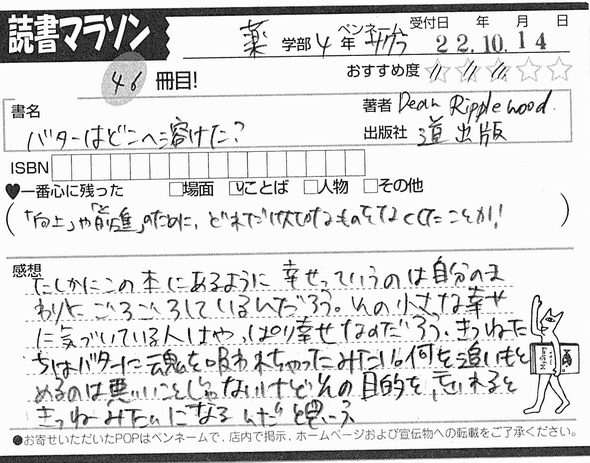 読書マラソン
薬 学部 4 年 ペンネーム サクラ 受付日 年 月 日 22.10.14
46 冊目! おすすめ度
書名 著者 Dean Ripplewood.
バターはどこへ溶けた? 出版社 道出版
ISBN
♥一番心に残った □場面 ☑ことば □人物 □その他
(「向上」や「前進」のために、どれだけ大切なものをなくしたことか!)
感想
たしかにこの本にあるように 幸せっていうのは自分のま
わりに ごろごろしているんだろう。その小さな幸せ
に気づいている人はやっぱり幸せなのだろう。きつねた
ちはバターに魂を吸われちゃったみたい。何を追いもと
めるのは悪いことじゃないけどその目的を忘れると
きつねみたいになるんだと思う
●お寄せいただいたPOPはペンネームで、店内で掲示、ホームページおよび宣伝物への転載をご了承ください。